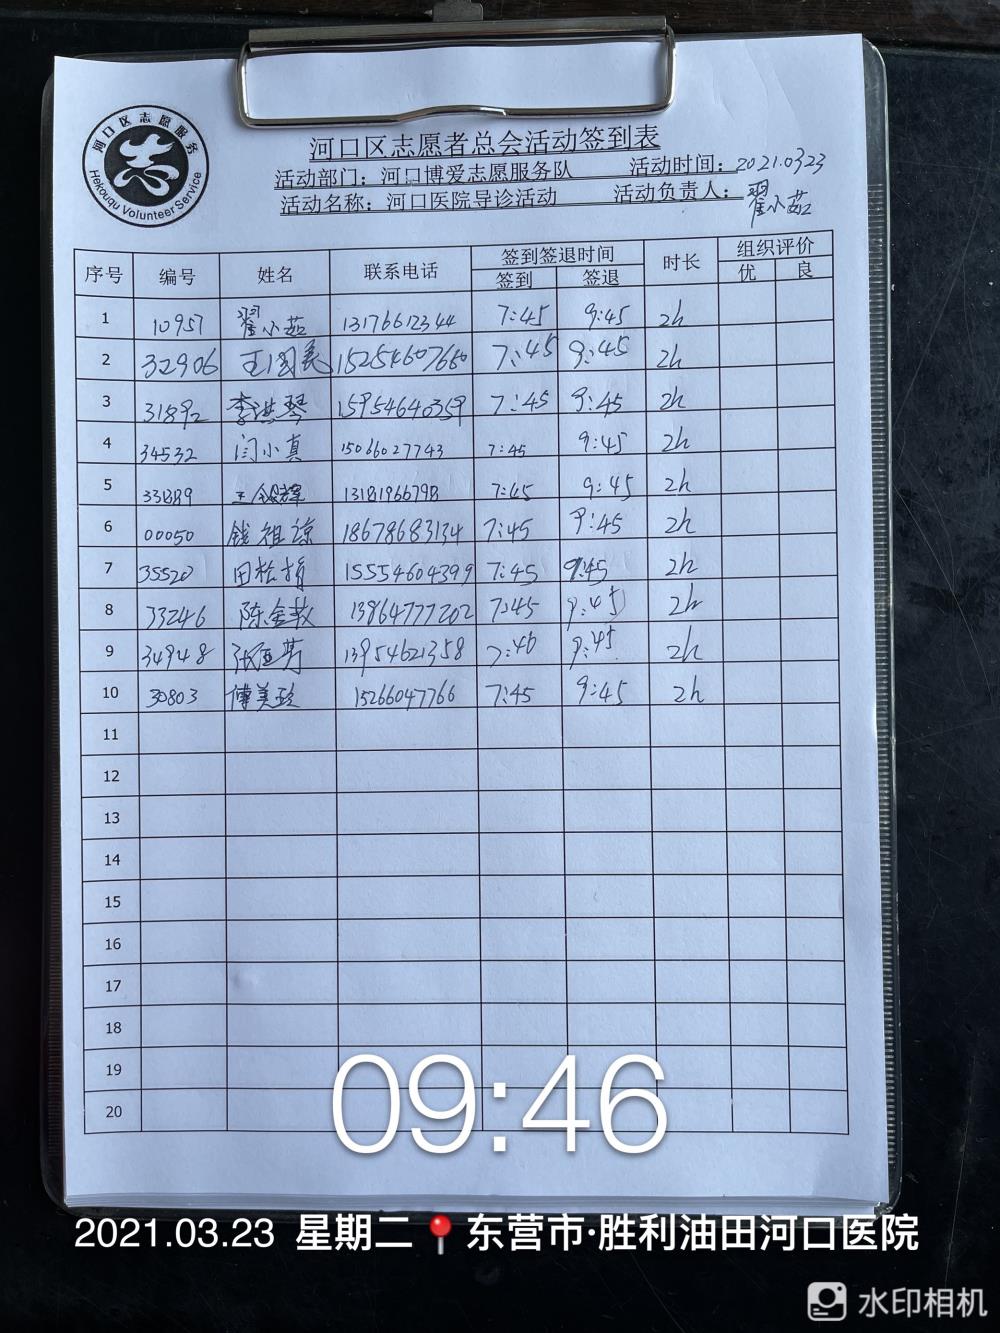 河口区志愿服务
志
Hekouqu Volunteer Service
河口区志愿者总会活动签到表
活动部门：河口博爱志愿服务队 活动时间：2021.0323
活动名称：河口医院导诊活动 活动负责人：翟小茹
序号 编号 姓名 联系电话 签到签退时间 时长 组织评价
签到 签退 优 良
1 10957 翟小茹 13176612344 7:45 9:45 2h
2 32906 王国美 15254607660 7:45 9:45 2h
3 31892 李洪琴 15954640359 7:45 9:45 2h
4 34532 闫小真 15066027743 7:45 9:45 2h
5 33889 王银辉 13181966798 7:45 9:45 2h
6 00050 钱祖谅 18678683134 7:45 9:45 2h
7 35520 田松梅 15554604399 7:45 9:45 2h
8 33246 陈金敏 13964777202 7:45 9:45 2h
9 34948 13954621358 7:46 9:45 2h
10 30803 傅美玲 15266047766 7:45 9:45 2h
11
12
13
14
15
16
17
18
19
20
09:46
2021.03.23 星期二 东营市·胜利油田河口医院
水印相机